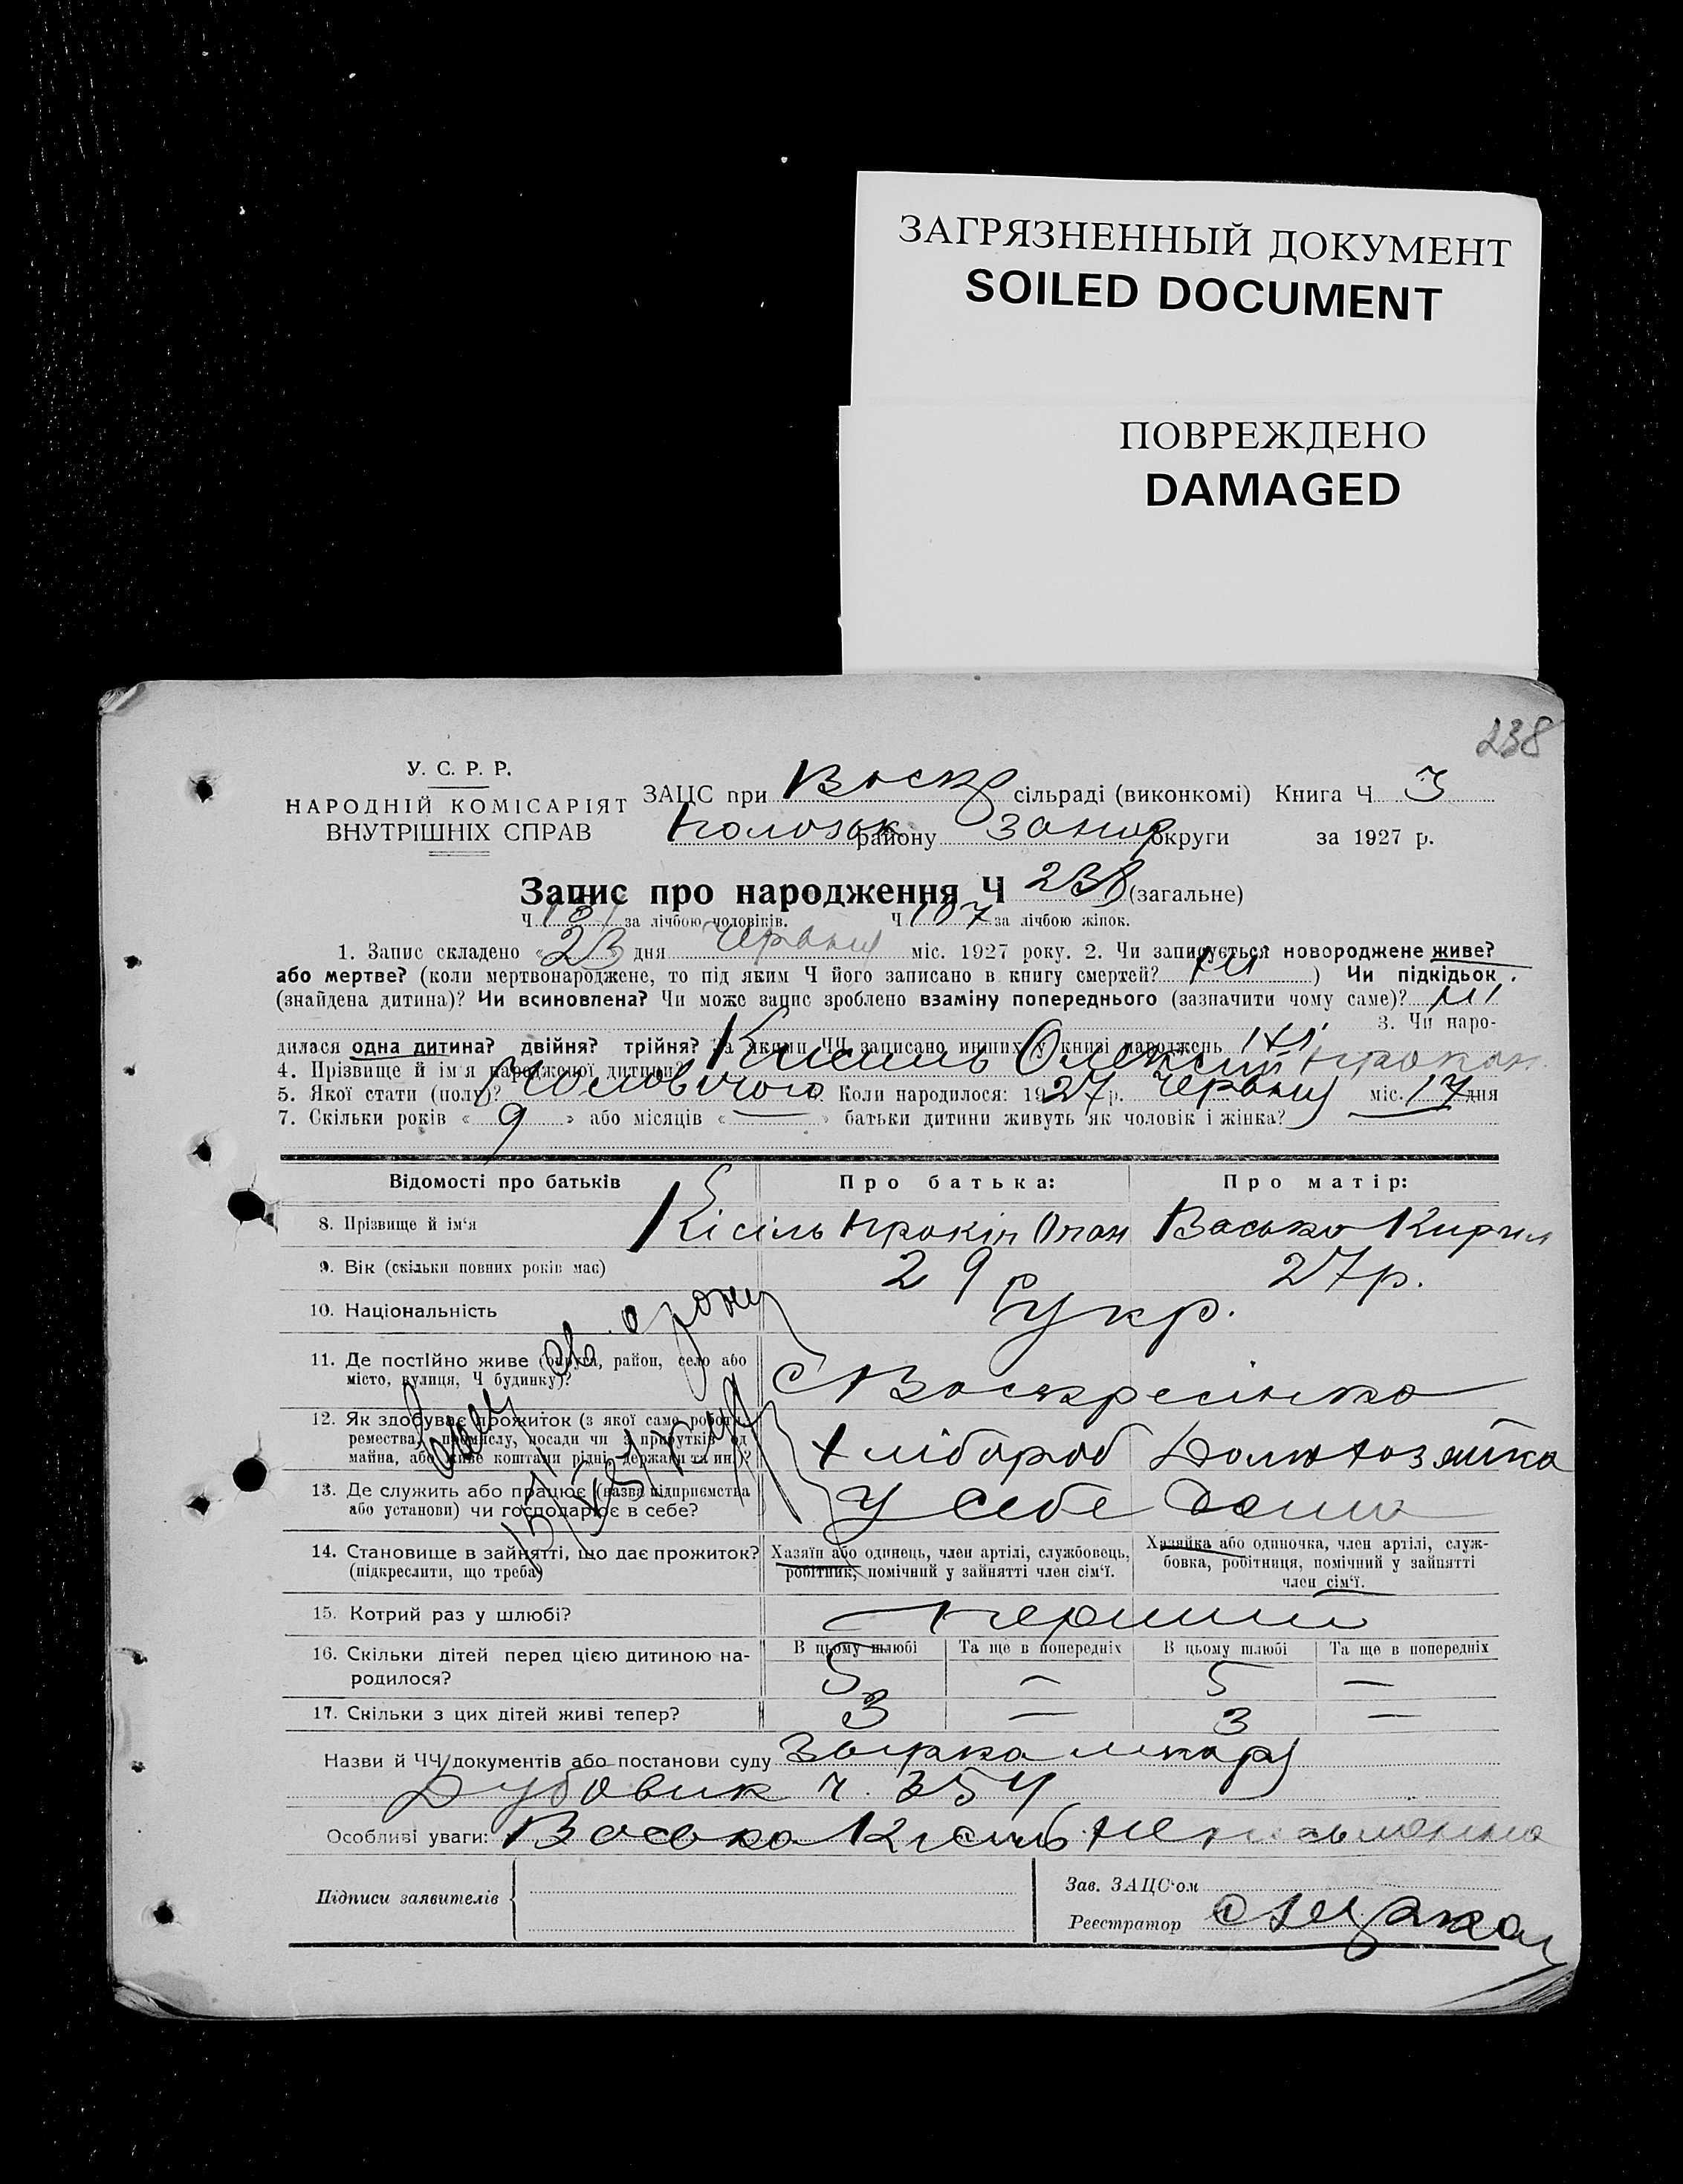 ЗАГРЯЗНЕННЫЙ ДОКУМЕНТ
SOILED DOCUMENT
ПОВРЕЖДЕНО
DAMAGED
238
У. С. Р. Р.
НАРОДНІЙ КОМІСАРІЯТ
ВНУТРІШНІХ СПРАВ
ЗАЦС при Воскр сільраді (виконкомі) Книга Ч 3
району Запор округи за 1927 р.
Запис про народження Ч 238 (загальне)
Ч 131 за лічбою чоловіків. Ч 107 за лічбою жінок.
1. Запис складено « 23 » дня Червня міс. 1927 року. 2. Чи записується новороджене живе?
або мертве? (коли мертвонароджене, то під яким Ч його записано в книгу смертей? ні ) Чи підкідьок
(знайдена дитина)? Чи всиновлена? Чи може запис зроблено взаміну попереднього (зазначити чому саме)? ні
3. Чи наро-
дилася одна дитина? двійня? трійня? За якими ЧЧ записано инших у книзі народжень ні
4. Прізвище й ім'я народженої дитини? Кисиль Олексій Прокоп.
5. Якої стати (полу)? Чоловічого Коли народилося: 1927 р. Червня міс. 17 дня
7. Скільки років « 9 » або місяців « — » батьки дитини живуть як чоловік і жінка? —
Відомості про батьків Про батька: Про матір:
8. Прізвище й ім'я Кісіль Прокіп Опан Васько Кирил
9. Вік (скільки повних років має) 29 р 27 р.
10. Національність Укр.
11. Де постійно живе (округа, район, село або
місто, вулиця, Ч будинку)? с Воскресінка
12. Як здобуває прожиток (з якої саме роботи,
ремества, промислу, посади чи з прибутків од
майна, або живе коштами рідні, держави та ин.)? Хлібороб Домохозяйка
13. Де служить або працює (назва підприємства
або установи) чи господарює в себе? У себе дома
14. Становище в зайнятті, що дає прожиток?
(підкреслити, що треба)
Хазяїн або одинець, член артілі, службовець,
робітник, помічний у зайнятті член сім'ї.
Хазяйка або одиночка, член артілі, служ-
бовка, робітниця, помічний у зайнятті
член сім'ї.
15. Котрий раз у шлюбі? Перший
16. Скільки дітей перед цією дитиною на-
родилося?
В цьому шлюбі Та ще в попередніх В цьому шлюбі Та ще в попередніх
5 — 5 —
17. Скільки з цих дітей живі тепер? 3 — 3 —
Назви й ЧЧ документів або постанови суду
Дубовик ч. 354
Особливі уваги: Васька Кисиль неписьменна
Підписи заявителів
Зав. ЗАЦС'ом
Реєстратор